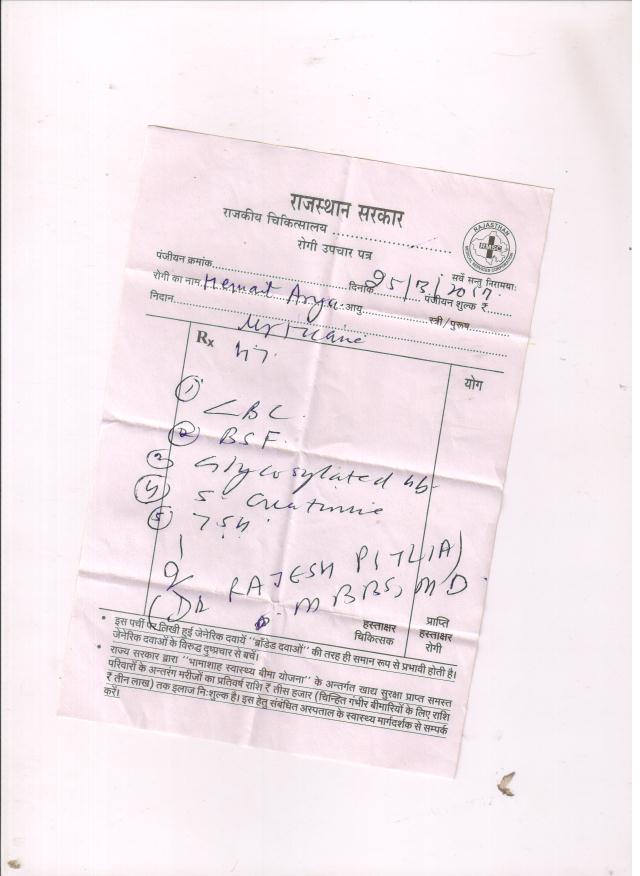 राजस्थान सरकार
राजकीय चिकित्सालय ..............................
रोगी उपचार पत्र
RAJASTHAN
सर्वे सन्तु निरामयाः
पंजीयन क्रमांक.............................. दिनांक 25/3/2017
रोगी का नाम Hemant Arya आयु.......... पंजीयन शुल्क ₹......
निदान.............................. स्त्री/पुरूष..........
Rx
योग
① CBC
② BSF
③ Glycosylated hb
④ S Creatinine
⑤ TSH
(DR RAJESH PITLIA)
MBBS, MD
हस्ताक्षर चिकित्सक
प्राप्ति हस्ताक्षर रोगी
• इस पर्ची पर लिखी हुई जेनेरिक दवायें "ब्रॉडेड दवाओं" की तरह ही समान रूप से प्रभावी होती है।
जेनेरिक दवाओं के विरुद्ध दुष्प्रचार से बचें।
• राज्य सरकार द्वारा "भामाशाह स्वास्थ्य बीमा योजना" के अन्तर्गत खाद्य सुरक्षा प्राप्त समस्त
परिवारों के अन्तरंग मरीजों का प्रतिवर्ष राशि ₹ तीस हजार (चिन्हित गंभीर बीमारियों के लिए राशि
₹ तीन लाख) तक इलाज निःशुल्क है। इस हेतु संबंधित अस्पताल के स्वास्थ्य मार्गदर्शक से सम्पर्क
करें।